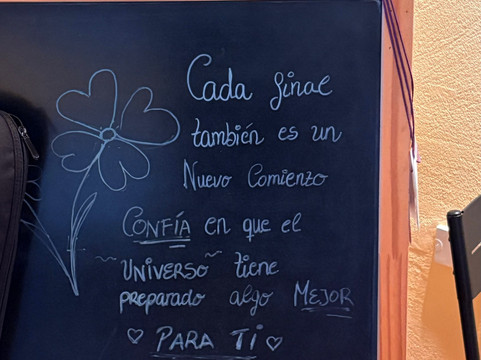 Cada final
también es un
Nuevo Comienzo
CONFÍA en que el
UNIVERSO tiene
preparado algo MEJOR
♡ PARA Ti ♡